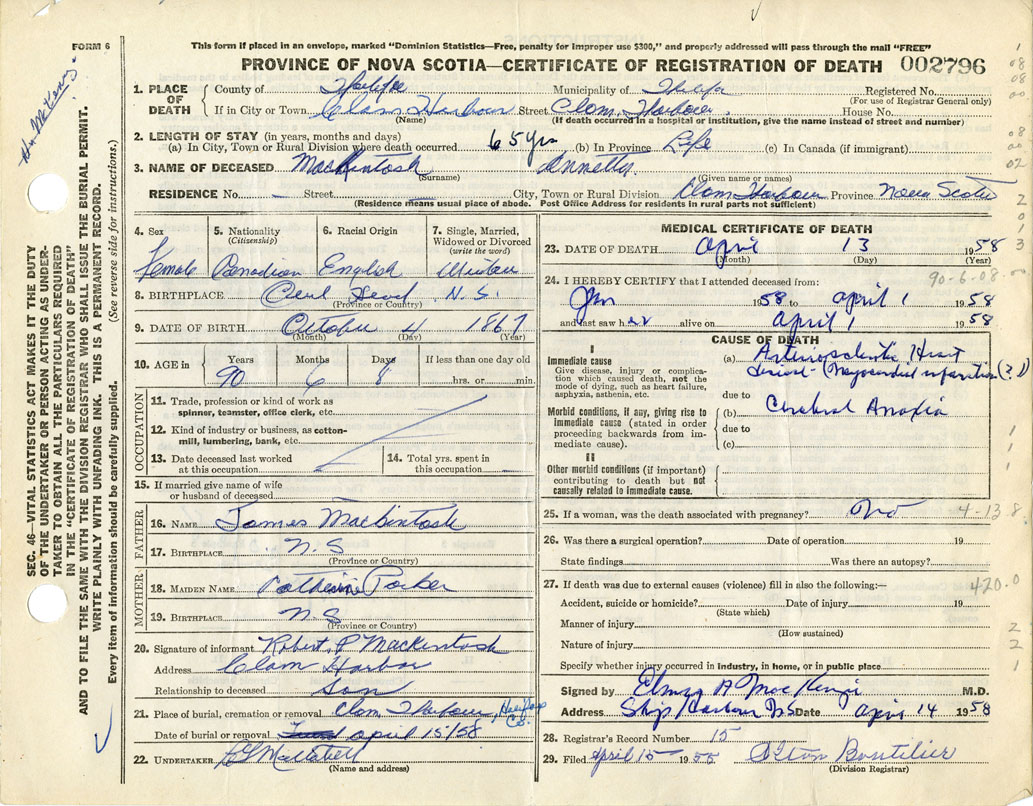 FORM 6
This form if placed in an envelope, marked "Dominion Statistics—Free, penalty for improper use $300," and properly addressed will pass through the mail "FREE"
PROVINCE OF NOVA SCOTIA—CERTIFICATE OF REGISTRATION OF DEATH 002796
1. PLACE OF DEATH
County of Halifax Municipality of Halifax Registered No.
(For use of Registrar General only)
If in City or Town Clam Harbour Street Clam Harbour House No.
(Name) (If death occurred in a hospital or institution, give the name instead of street and number)
2. LENGTH OF STAY (in years, months and days)
(a) In City, Town or Rural Division where death occurred 65 yrs (b) In Province Life (c) In Canada (if immigrant)
3. NAME OF DECEASED MacKintosh Annetta
(Surname) (Given name or names)
RESIDENCE No. — Street City, Town or Rural Division Clam Harbour Province Nova Scotia
(Residence means usual place of abode. Post Office Address for residents in rural parts not sufficient)
4. Sex 5. Nationality 6. Racial Origin 7. Single, Married,
(Citizenship) Widowed or Divorced
(write the word)
Female Canadian English Widow
8. BIRTHPLACE Head N.S.
(Province or Country)
9. DATE OF BIRTH October 4 1867
(Month) (Day) (Year)
10. AGE in Years Months Days If less than one day old
90 6 8 hrs. or min.
OCCUPATION
11. Trade, profession or kind of work as
spinner, teamster, office clerk, etc.
12. Kind of industry or business, as cotton-
mill, lumbering, bank, etc.
13. Date deceased last worked
at this occupation
14. Total yrs. spent in
this occupation
15. If married give name of wife
or husband of deceased
FATHER
16. NAME James MacKintosh
17. BIRTHPLACE N.S
(Province or Country)
MOTHER
18. MAIDEN NAME Catherine Parker
19. BIRTHPLACE N.S
(Province or Country)
20. Signature of informant Robert P MacKintosh
Address Clam Harbor
Relationship to deceased Son
21. Place of burial, cremation or removal Clam Harbour, Halifax Co.
Date of burial or removal April 15/58
22. UNDERTAKER
(Name and address)
MEDICAL CERTIFICATE OF DEATH
23. DATE OF DEATH April 13 1958
(Month) (Day) (Year)
90-6-08
24. I HEREBY CERTIFY that I attended deceased from:
Jan 1958 to April 1 1958
and last saw her alive on April 1 1958
CAUSE OF DEATH
I
Immediate cause
Give disease, injury or complica-
tion which caused death, not the
mode of dying, such as heart failure,
asphyxia, asthenia, etc.
(a) Arteriosclerotic Heart
disease - Myocardial infarction (?)
due to
Morbid conditions, if any, giving rise to
immediate cause (stated in order
proceeding backwards from im-
mediate cause).
(b) Cerebral Anoxia
due to
(c)
II
Other morbid conditions (if important)
contributing to death but not
causally related to immediate cause.
25. If a woman, was the death associated with pregnancy? No
4-13 8
26. Was there a surgical operation? Date of operation 19
State findings Was there an autopsy?
27. If death was due to external causes (violence) fill in also the following:—
420.0
Accident, suicide or homicide? Date of injury 19
(State which)
Manner of injury
(How sustained)
Nature of injury
Specify whether injury occurred in industry, in home, or in public place
Signed by A MacKenzie M.D.
Address Ship Harbour N.S Date April 14 1958
28. Registrar's Record Number 15
29. Filed April 15 19 Alton Boutilier
(Division Registrar)
SEC. 46—VITAL STATISTICS ACT MAKES IT THE DUTY
OF THE UNDERTAKER OR PERSON ACTING AS UNDER-
TAKER TO OBTAIN ALL THE PARTICULARS REQUIRED
IN THE "CERTIFICATE OF REGISTRATION OF DEATH"
AND TO FILE THE SAME WITH THE DIVISION REGISTRAR WHO SHALL ISSUE THE BURIAL PERMIT.
WRITE PLAINLY WITH UNFADING INK. THIS IS A PERMANENT RECORD.
Every item of information should be carefully supplied. (See reverse side for instructions.)